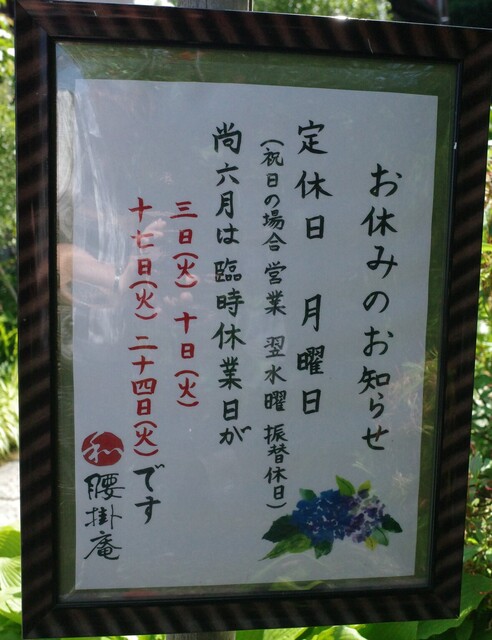 お休みのお知らせ
定休日　月曜日
(祝日の場合 営業 翌水曜 振替休日)
尚六月は臨時休業日が
三日(火) 十日(火)
十七日(火) 二十四日(火)です
和 腰掛庵